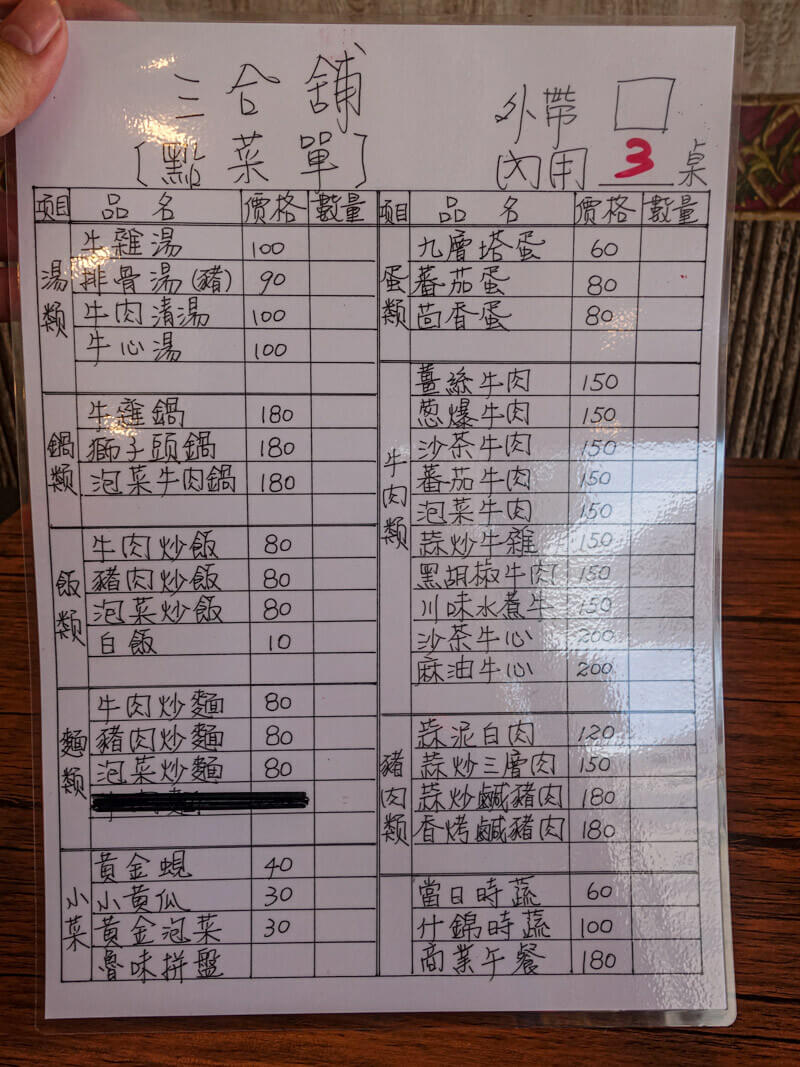 三合舖
[點菜單]
外帶 □
內用 3 桌
项目 品名 價格 數量
湯類
牛雜湯 100
排骨湯(豬) 90
牛肉清湯 100
牛心湯 100
鍋類
牛雜鍋 180
獅子頭鍋 180
泡菜牛肉鍋 180
飯類
牛肉炒飯 80
豬肉炒飯 80
泡菜炒飯 80
白飯 10
麵類
牛肉炒麵 80
豬肉炒麵 80
泡菜炒麵 80
小菜
黃金蜆 40
小黃瓜 30
黃金泡菜 30
魯味拼盤
项目 品名 價格 數量
蛋類
九層塔蛋 60
蕃茄蛋 80
茴香蛋 80
牛肉類
薑絲牛肉 150
葱爆牛肉 150
沙茶牛肉 150
蕃茄牛肉 150
泡菜牛肉 150
蒜炒牛雜 150
黑胡椒牛肉 150
川味水煮牛 150
沙茶牛心 200
麻油牛心 200
豬肉類
蒜泥白肉 120
蒜炒三層肉 150
蒜炒鹹豬肉 180
香烤鹹豬肉 180
當日時蔬 60
什錦時蔬 100
商業午餐 180